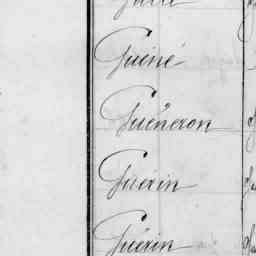 Guiné
Guéneron
Guérin
Guérin